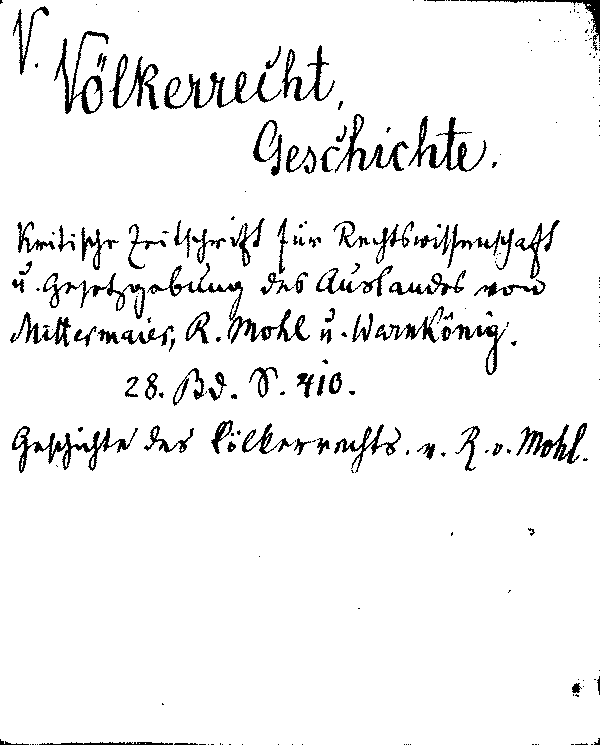 V.
Völkerrecht,
Geschichte.
Kritische Zeitschrift für Rechtswissenschaft
u. Gesetzgebung des Auslandes von
Mittermaier, R. Mohl u. Warnkönig.
28. Bd. S. 410.
Geschichte des Völkerrechts. v. R. v. Mohl.